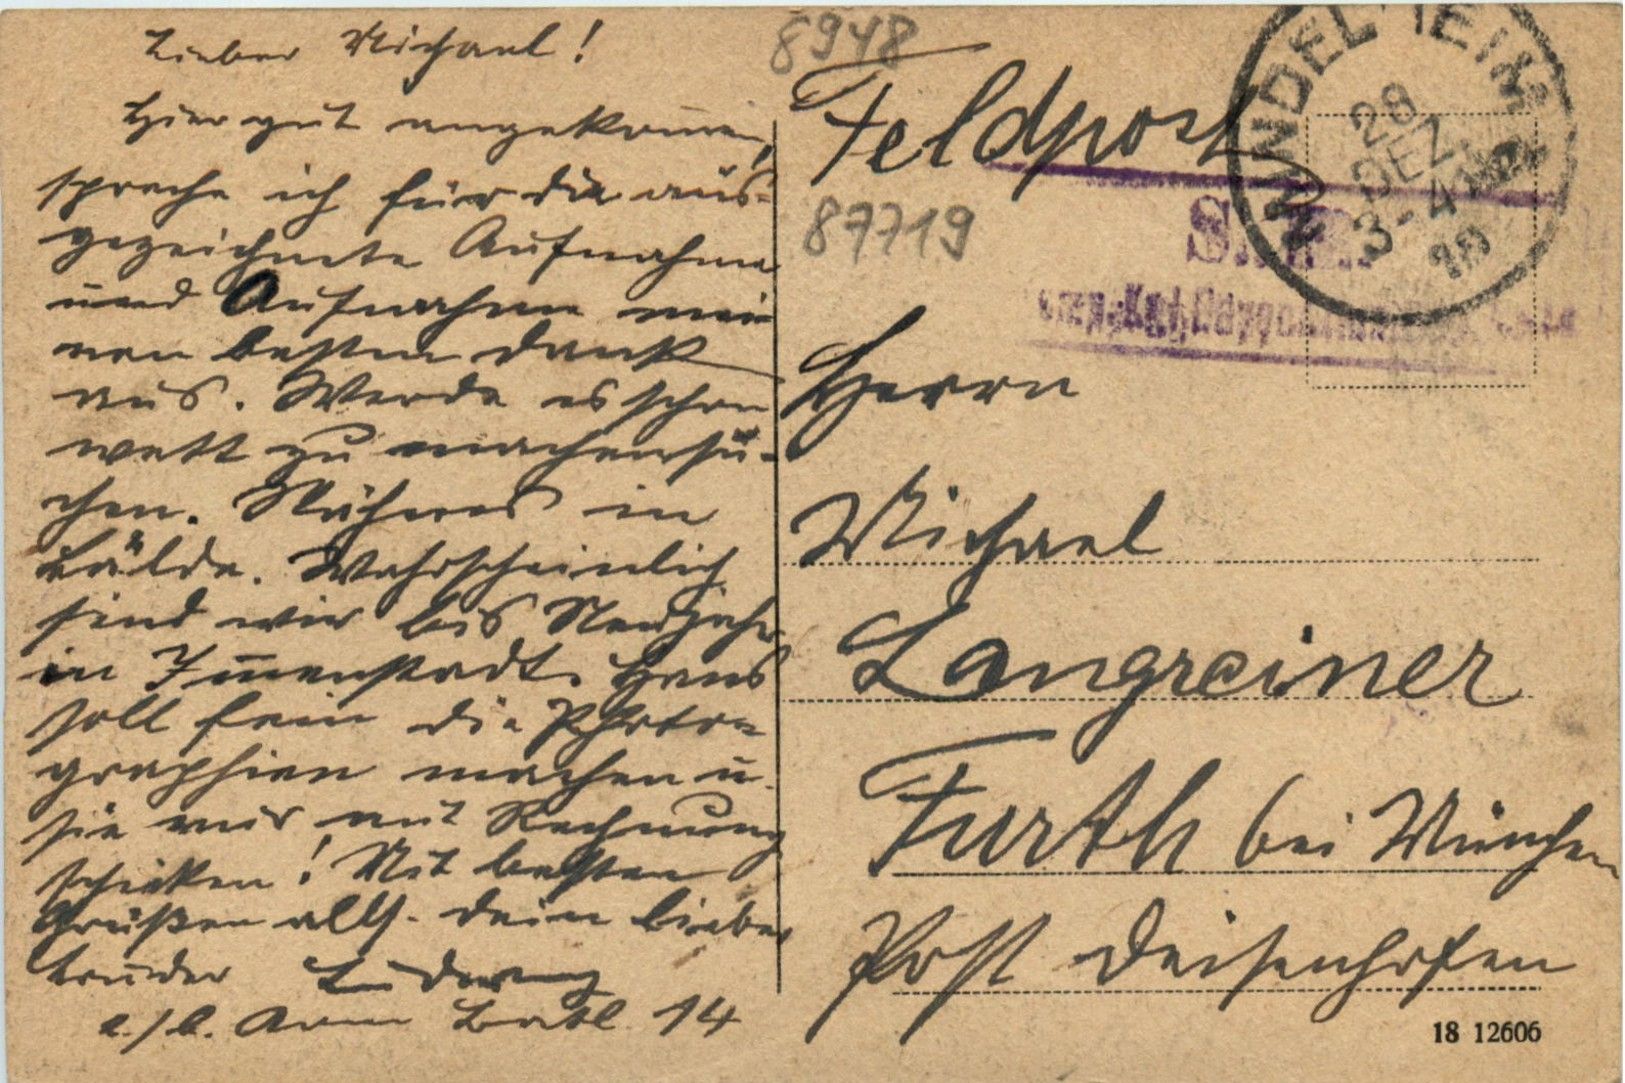 Lieber Michael!
Hier gut angekommen,
spreche ich für die aus-
gezeichnete Aufnahme
und Aufnahm mei
nen besten Dank
aus. Werde es schon
wett zu machen su-
chen. Näheres in
Bälde. Wahrscheinlich
sind wir bis Neujahr
in Immenstadt. Hans
soll fein die Photo-
graphien machen u.
sie mir mit Rechnung
schicken! Mit besten
Grüßen allf. Dein lieber
Bruder Ludwig
Batl. 14
8948
Feldpost
87719
MINDELHEIM
28
DEZ.
3-4
18
S.B.
Herrn
Michael
Langreiner
Furth bei München
Post Deisenhofen
18 12606